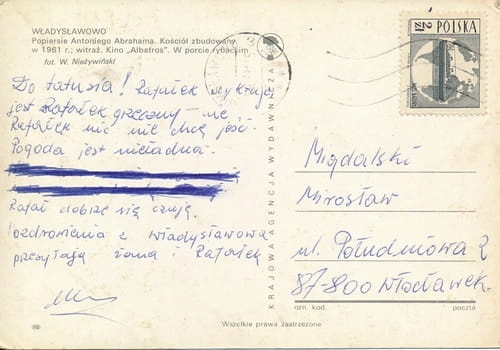 WŁADYSŁAWOWO
Popiersie Antoniego Abrahama. Kościół zbudowany
w 1961 r.; witraż. Kino „Albatros". W porcie rybackim
fot. W. Nieżywiński
Do tatusia! Rafałek
jest Rafałek grzeczny
Rafałek nic nie chce jeść.
Pogoda jest nieładna.
Rafał dobrze się czuje.
Pozdrowienia z Władysławowa
przesyłają żona i Rafałek
KRAJOWA AGENCJA WYDAWNICZA
2 ZŁ
POLSKA
Migdalski
Mirosław
ul. Południowa 2
87-800 Włocławek
ozn. kod.
poczta
Wszelkie prawa zastrzeżone